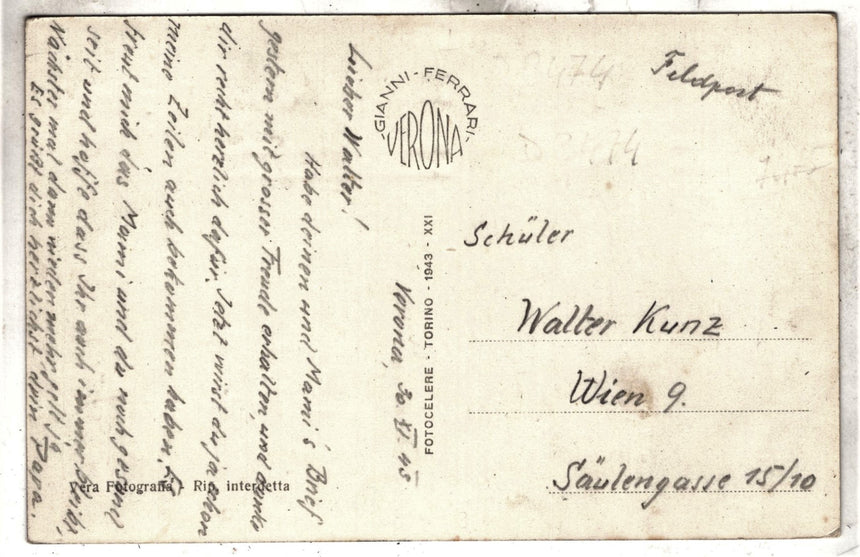 Feldpost
D 8474
D 8474
GIANNI-FERRARI-
VERONA
FOTOCELERE - TORINO - 1943 - XXI
Schüler
Walter Kunz
Wien 9.
Säulengasse 15/10
Verona, 30 XI. 45
Lieber Walter!
Habe deinen und Mami's Brief
gestern mit grosser Freude erhalten, und danke
dir recht herzlich dafür. Jetzt wirst du ja schon
meine Zeilen auch bekommen haben. Es
freut mich das Mami und du noch gesund
seit und hoffe dass Ihr auch immer bleibt,
Nächstes mal dann wieder mehr
Es grüßt dich herzlichst dein Papa.
Vera Fotografia - Rip. interdetta